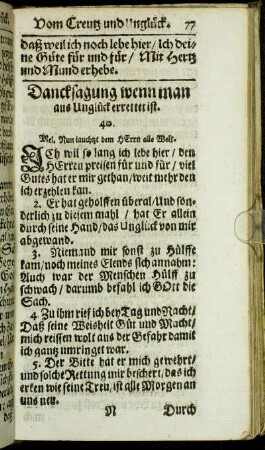 Vom Creutz und Unglück. 77
daß weil ich noch lebe hier/ Ich dei-
ne Güte für und für/ Mit Hertz
und Mund erhebe.
Dancksagung wenn man
aus Unglück errettet ist.
40.
Mel. Nun lauchtzt dem HErrn alle Welt.
ICh wil so lang ich lebe hier/ den
HErren preisen für und für/ viel
Gutes hat er mir gethan/ weit mehr den
ich erzehlen kan.
2. Er hat geholffen überal/ Und son-
derlich zu diesem mahl/ hat Er allein
durch seine Hand/ das Unglück von mir
abgewand.
3. Niemand mir sonst zu Hülffe
kam/ noch meines Elends sich annahm:
Auch war der Menschen Hülff zu
schwach/ darumb befahl ich GOtt die
Sach.
4 Zu ihm rief ich bey Tag und Nacht/
Daß seine Weisheit Güt und Macht/
mich reissen wolt aus der Gefahr damit
ich gantz umringet war.
5. Der Bitte hat er mich gewehrt/
und solche Rettung mir beschert/ das ich
erken wie seine Treu, ist alle Morgen an
uns neu.
N Durch